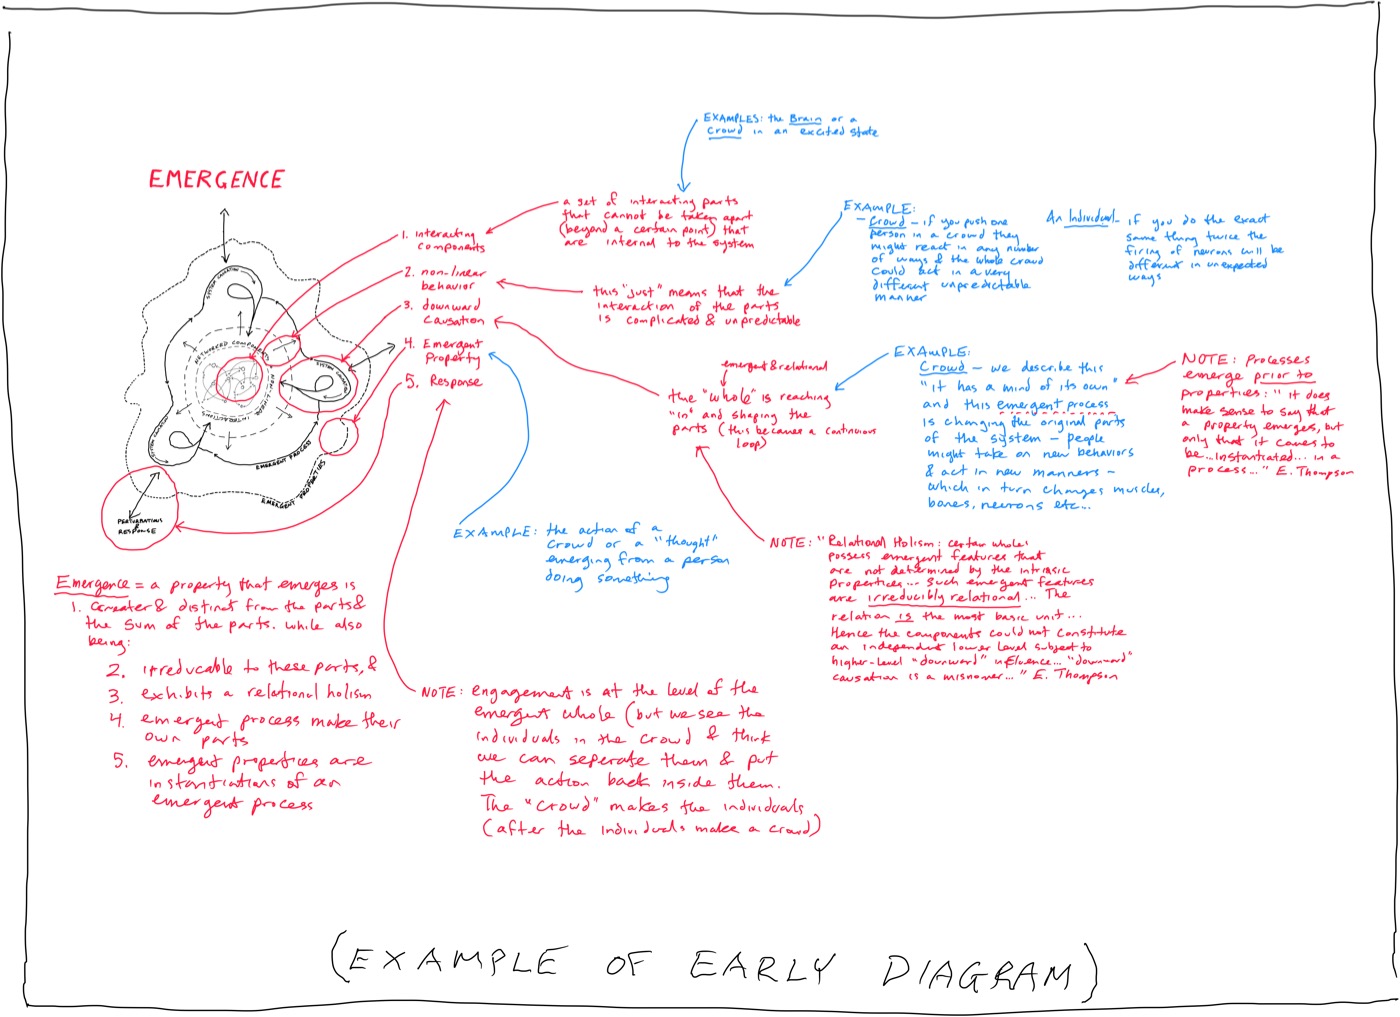 EXAMPLES: the Brain or a
Crowd in an excited state
EMERGENCE
a set of interacting parts
that cannot be taken apart
(beyond a certain point) that
are internal to the system
EXAMPLE:
- Crowd - if you push one
person in a crowd they
might react in any number
of ways & the whole crowd
could act in a very
different unpredictable
manner
An Individual - if you do the exact
same thing twice the
firing of neurons will be
different in unexpected
ways
1. interacting
components
2. non-linear
behavior
3. downward
causation
4. Emergent
Property
5. Response
this "just" means that the
interaction of the parts
is complicated & unpredictable
emergent & relational
the "whole" is reaching
"in" and shaping the
parts (this becomes a continuous
loop)
EXAMPLE:
Crowd - we describe this
"it has a mind of its own"
and this emergent process
is changing the original parts
of the system - people
might take on new behaviors
& act in new manners -
which in turn changes muscles,
bones, neurons etc...
NOTE: Processes
emerge prior to
properties: "it does
make sense to say that
a property emerges, but
only that it comes to
be...instantiated... in a
process..." E. Thompson
SYSTEM CAUSATION
NETWORKED COMPONENTS
NON-LINEAR
INTERACTIONS
SYSTEM CAUSATION
SYSTEM CAUSATION
EMERGENT PROCESS
EMERGENT PROPERTIES
PERTURBATIONS
&
RESPONSE
EXAMPLE: the action of a
crowd or a "thought"
emerging from a person
doing something
NOTE: "Relational Holism: certain wholes
possess emergent features that
are not determined by the intrinsic
properties... Such emergent features
are irreducibly relational... The
relation is the most basic unit...
Hence the components could not constitute
an independent lower level subject to
higher-level "downward" influence... "downward"
causation is a misnomer..." E. Thompson
Emergence = a property that emerges is
1. Greater & distinct from the parts &
the sum of the parts. while also
being:
2. irreducable to these parts, &
3. exhibits a relational holism
4. emergent process make their
own parts
5. emergent properties are
instantiations of an
emergent process
NOTE: engagement is at the level of the
emergent whole (but we see the
individuals in the crowd & think
we can seperate them & put
the action back inside them.
The "crowd" makes the individuals
(after the individuals make a crowd)
(EXAMPLE OF EARLY DIAGRAM)